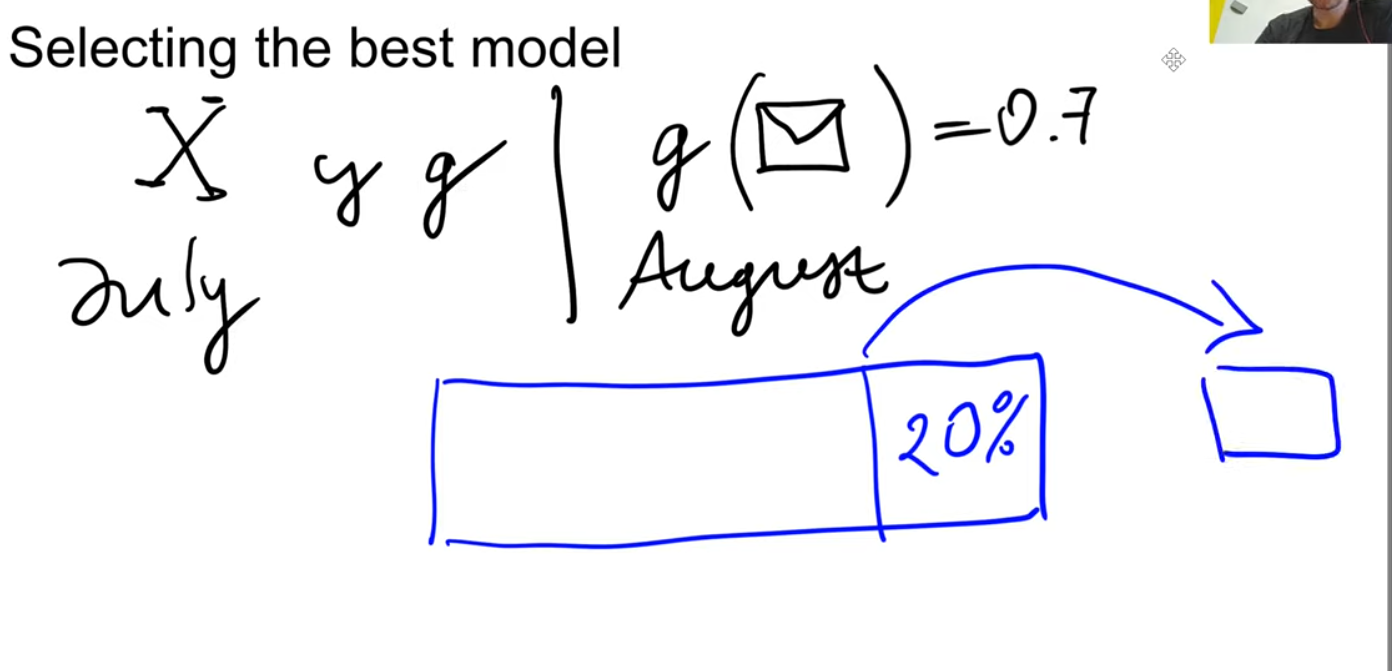 Selecting the best model
X y g | g( ) = 0.7
July August
20%